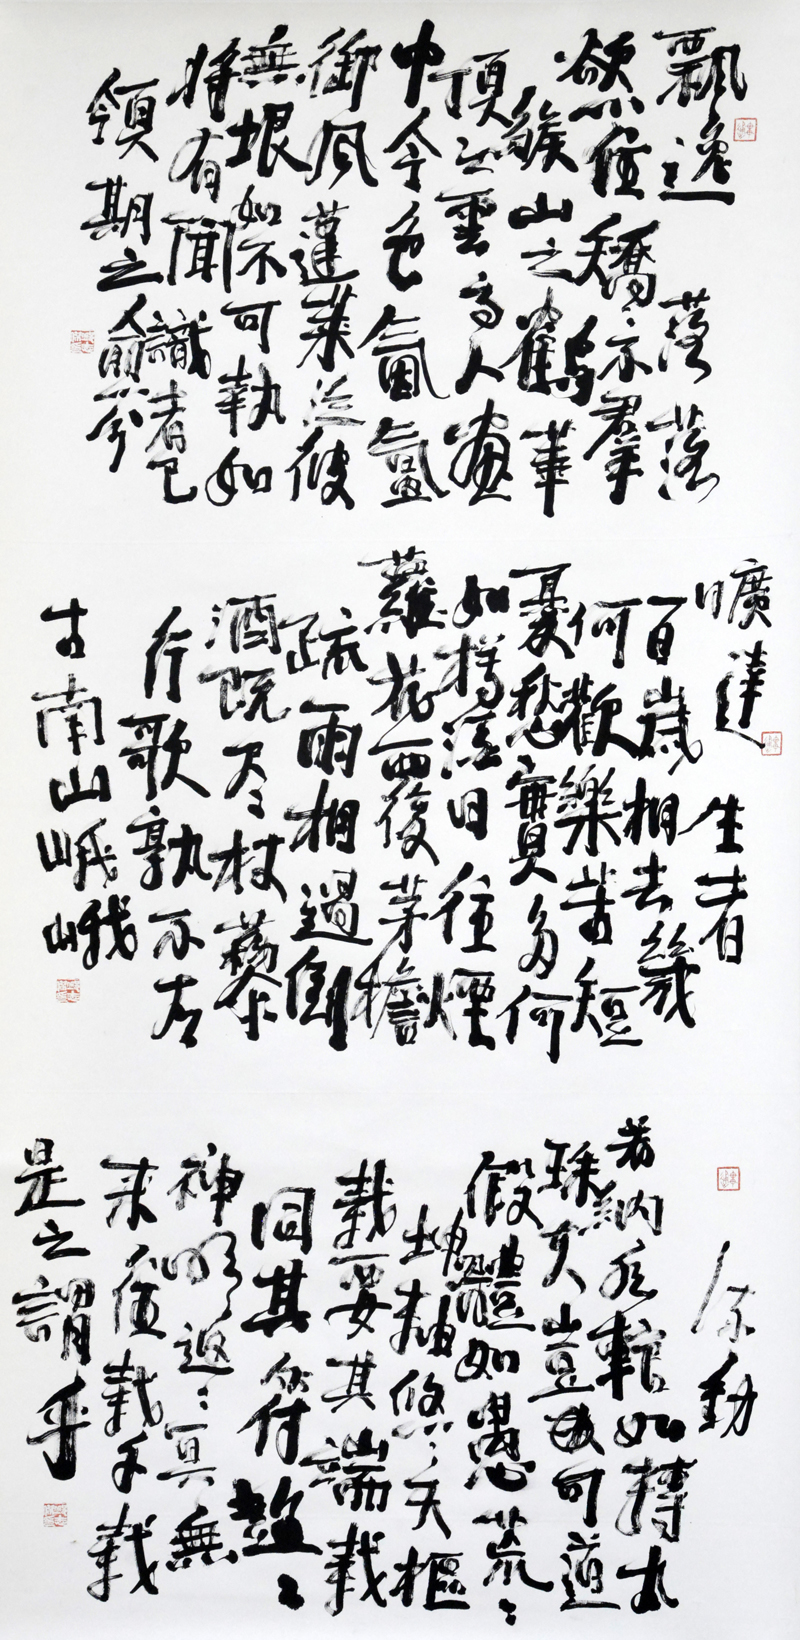 飄逸 落落
欲往矯〻不羣
緱山之鶴華
頂之雲高人畫
中令色氤氳
御風蓬葉泛彼
無垠如不可執如
將有聞識者已
領期之愈分
曠達 生者
百歲相去幾
何歡樂苦短
憂愁實多何
如樽酒日往煙
蘿花覆茅檐
疏雨相過倒
酒既尽杖藜
行歌孰不有
古南山峨峨
流動
若納水輨如轉丸
珠夫豈可道
假體如愚荒〻
坤軸悠〻天樞
載要其端載
同其符超〻
神明返〻冥無
來往載千載
是之謂乎